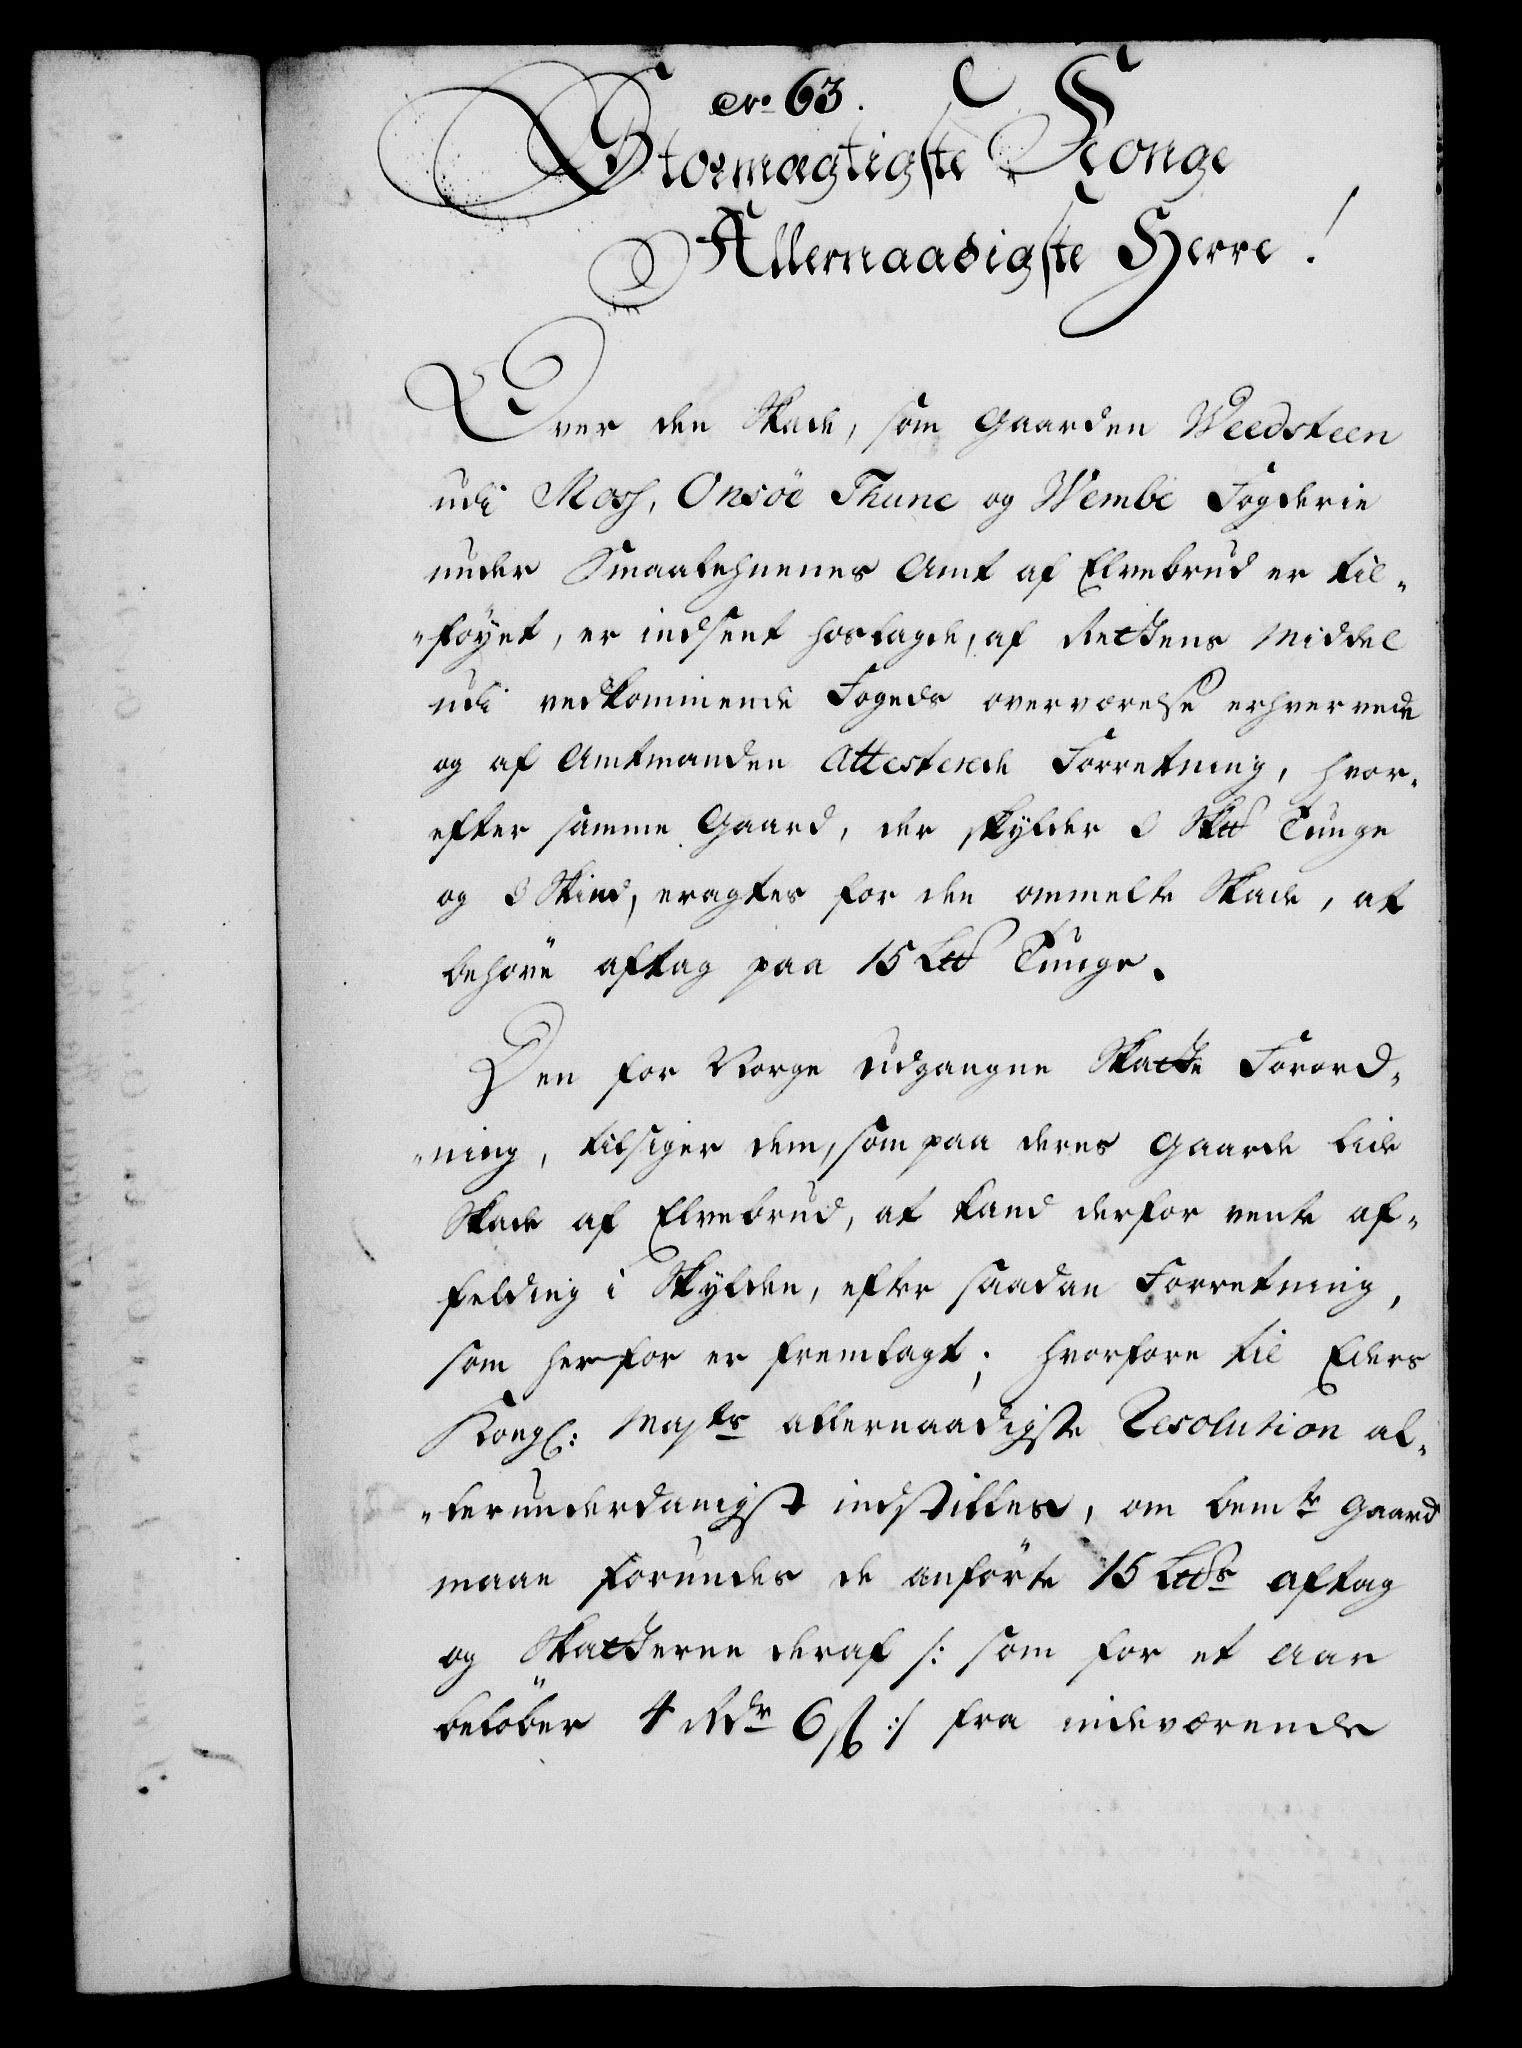 No 63.
Stormægtigste Konge
Allernaadigste Herre!
Over den Skade, som Gaarden Weedsteen
udi Moss, Onsöe Thune og Wembe Fogderie
under Smaalehnenes Amt af Elvebrud er til-
-föyet, er indsent hoslagde, af Rettens Middel
udi vedkommende Fogeds overværelse erhvervede
og af Amtmanden Attesterede Forretning, hvor-
efter samme Gaard, der skylder 3 Sk℔ Tunge
og 3 Skind, eragtes for den ommelte Skade, at
behöve aftag paa 15 L℔ Tunge.
Den for Norge udgangne Skatte Forord-
-ning, tilsiger dem, som paa deres Gaarde lide
Skade af Elvebrud, at kand derfor vente af-
felding i Skylden, efter saadan Forretning,
som herfor er fremlagt; hvorfore til Eders
Kongl: Majts allernaadigste Resolution al-
-lerunderdanigst indstilles, om bemte Gaard
maae forundes de anförte 15 L℔s aftag
og Skatterne deraf /: som for et Aar
belöber 4 Rdr 6 ß :/ fra indeværende